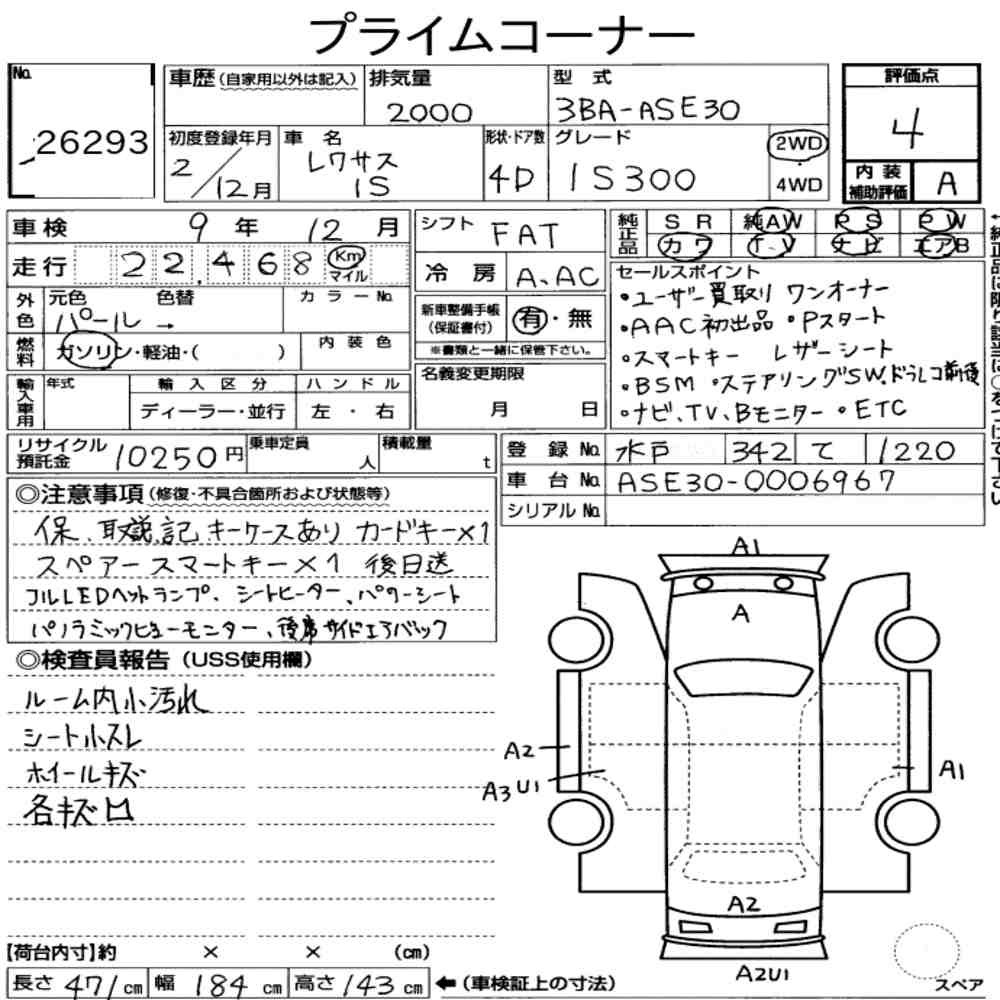 プライムコーナー
No. 26293
車歴 (自家用以外は記入)
排気量 2000
型式 3BA-ASE30
評価点 4
初度登録年月 2/12月
車名 レクサス IS
形状・ドア数 4D
グレード IS300
2WD
4WD
内装補助評価 A
車検 9年 12月
シフト FAT
純正品 SR 純AW PS PW
カワ TV ナビ エアB
走行 22,468 Km マイル
冷房 A、AC
セールスポイント
・ユーザー買取り ワンオーナー
・AAC初出品 ・Pスタート
・スマートキー レザーシート
・BSM ・ステアリングSW、ドラレコ前後
・ナビ、TV、Bモニター ・ETC
外色 元色 パール → 色替 カラーNo.
新車整備手帳 (保証書付) 有・無
※書類と一緒に保管下さい。
燃料 ガソリン・軽油・( )
内装色
名義変更期限 月 日
輸入車用 年式 輸入区分 ハンドル
ディーラー・並行 左・右
リサイクル預託金 10250円
乗車定員 人
積載量 t
登録No. 水戸 342 て 1220
車台No. ASE30-0006967
シリアルNo.
◎注意事項 (修復・不具合箇所および状態等)
保、取説、記、キーケースあり カードキー×1
スペアースマートキー×1 後日送
フルLEDヘットランプ、シートヒーター、パワーシート
パノラミックビューモニター、後席サイドエアバック
◎検査員報告 (USS使用欄)
ルーム内小汚れ
シート小スレ
ホイールキズ
各キズ凹
A1
A
A2
A3 U1
A1
A2
A2U1
スペア
【荷台内寸】約 × × (cm)
長さ 471cm 幅 184cm 高さ 143cm ←(車検証上の寸法)